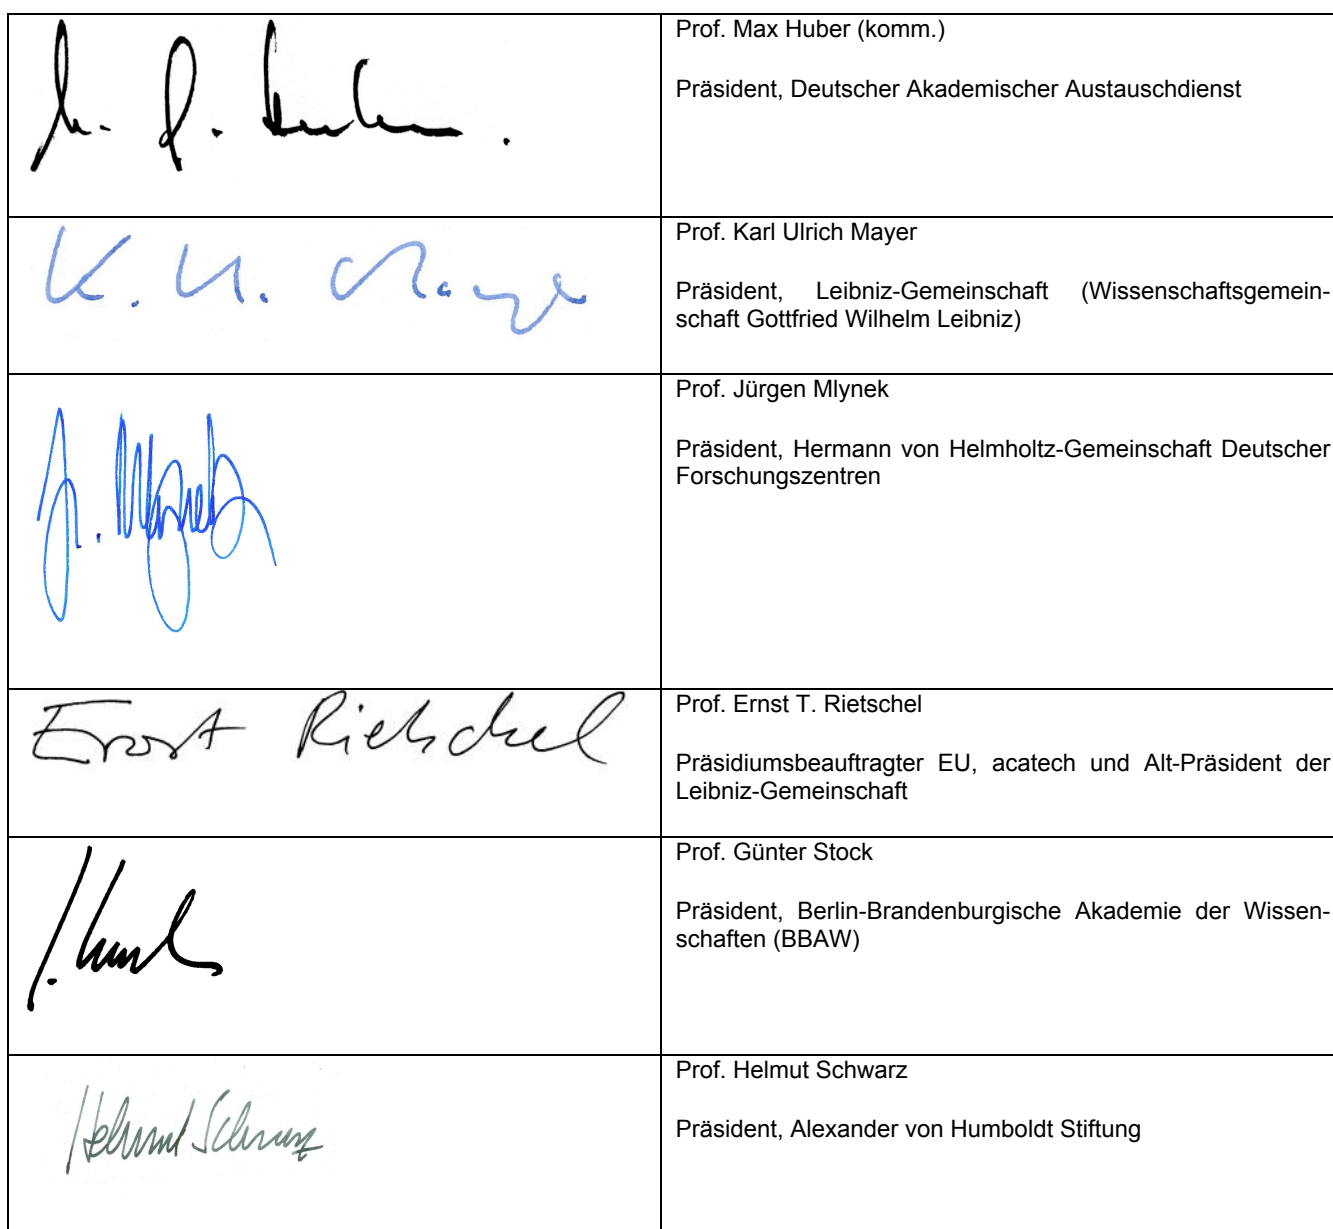 Prof. Max Huber (komm.)
Präsident, Deutscher Akademischer Austauschdienst
K. U. Mayer
Prof. Karl Ulrich Mayer
Präsident, Leibniz-Gemeinschaft (Wissenschaftsgemein-
schaft Gottfried Wilhelm Leibniz)
J. Mlynek
Prof. Jürgen Mlynek
Präsident, Hermann von Helmholtz-Gemeinschaft Deutscher
Forschungszentren
Ernst Rietschel
Prof. Ernst T. Rietschel
Präsidiumsbeauftragter EU, acatech und Alt-Präsident der
Leibniz-Gemeinschaft
Prof. Günter Stock
Präsident, Berlin-Brandenburgische Akademie der Wissen-
schaften (BBAW)
Helmut Schwarz
Prof. Helmut Schwarz
Präsident, Alexander von Humboldt Stiftung